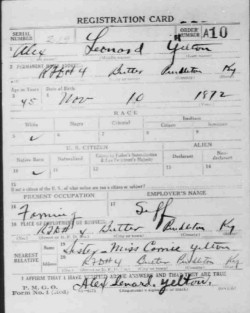 REGISTRATION CARD
SERIAL NUMBER ORDER NUMBER A10
Alex Leonard Yelton
RFD#4 Butler Pendleton Ky
Age in Years Date of Birth
45 Nov 10 1872
RACE
White Negro Oriental Indian
U. S. CITIZEN ALIEN
Native Born Naturalized Declarant Non-declarant
If not a citizen of the U. S., of what nation are you a citizen or subject?
PRESENT OCCUPATION EMPLOYER'S NAME
Farming Self
RFD#4 Butler Pendleton Ky
NEAREST RELATIVE Name Sister - Miss Yelton
Address RFD#4 Butler Pendleton Ky
I AFFIRM THAT I HAVE VERIFIED ABOVE ANSWERS AND THAT THEY ARE TRUE
P. M. G. O.
Form No. 1
Alex Lenard Yelton